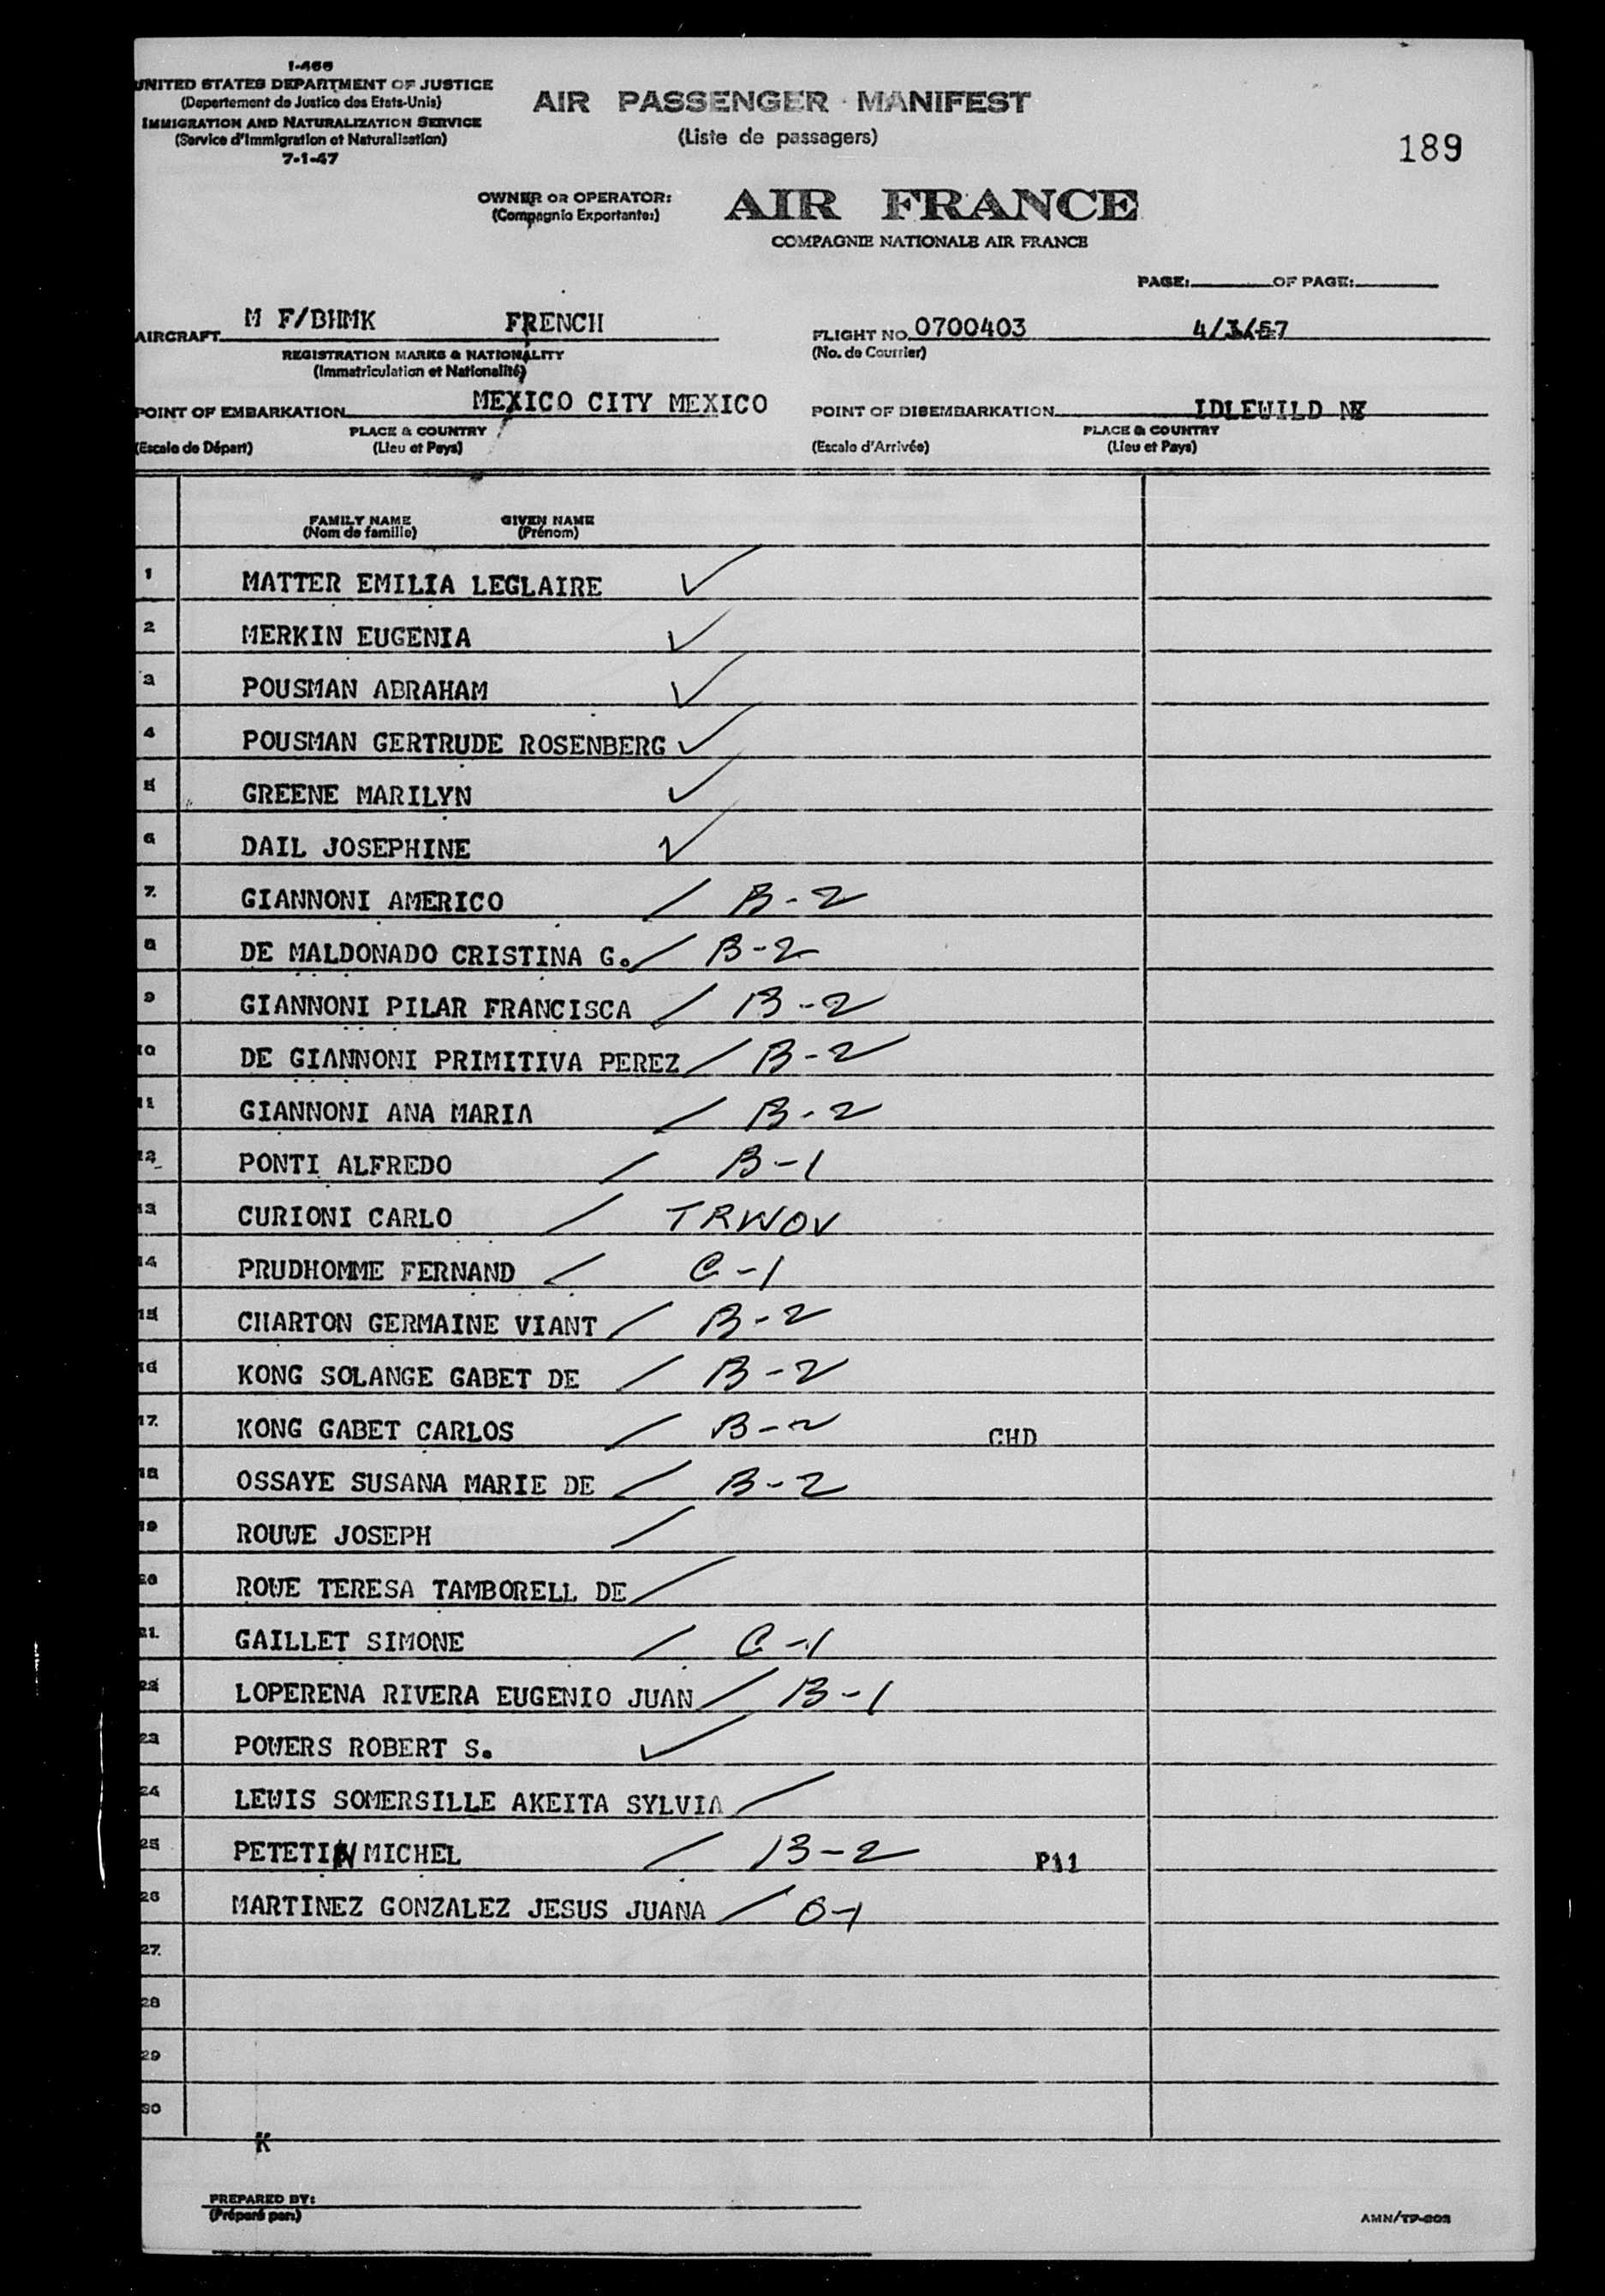 I-466
UNITED STATES DEPARTMENT OF JUSTICE
(Departement de Justice des Etats-Unis)
IMMIGRATION AND NATURALIZATION SERVICE
(Service d'Immigration et Naturalisation)
7-1-47
AIR PASSENGER MANIFEST
(Liste de passagers)
189
OWNER OR OPERATOR:
(Compagnie Exportante:)
AIR FRANCE
COMPAGNIE NATIONALE AIR FRANCE
PAGE: OF PAGE:
AIRCRAFT M F/BHMK FRENCH
REGISTRATION MARKS & NATIONALITY
(Immatriculation et Nationalité)
FLIGHT NO. 0700403 4/3/57
(No. de Courrier)
POINT OF EMBARKATION MEXICO CITY MEXICO
PLACE & COUNTRY
(Escale de Départ) (Lieu et Pays)
POINT OF DISEMBARKATION IDLEWILD
PLACE & COUNTRY
(Escale d'Arrivée) (Lieu et Pays)
FAMILY NAME GIVEN NAME
(Nom de famille) (Prénom)
1 MATTER EMILIA LEGLAIRE ✓
2 MERKIN EUGENIA ✓
3 POUSMAN ABRAHAM ✓
4 POUSMAN GERTRUDE ROSENBERG ✓
5 GREENE MARILYN ✓
6 DAIL JOSEPHINE ✓
7. GIANNONI AMERICO / B-2
8 DE MALDONADO CRISTINA G. / B-2
9 GIANNONI PILAR FRANCISCA / B-2
10 DE GIANNONI PRIMITIVA PEREZ / B-2
11 GIANNONI ANA MARIA / B-2
12 PONTI ALFREDO / B-1
13 CURIONI CARLO / TRWOV
14 PRUDHOMME FERNAND / C-1
15 CHARTON GERMAINE VIANT / B-2
16 KONG SOLANGE GABET DE / B-2
17. KONG GABET CARLOS / B-2 CHD
18 OSSAYE SUSANA MARIE DE / B-2
19 ROUWE JOSEPH /
20 ROWE TERESA TAMBORELL DE /
21. GAILLET SIMONE / C-1
22 LOPERENA RIVERA EUGENIO JUAN / B-1
23 POWERS ROBERT S. ✓
24 LEWIS SOMERSILLE AKEITA SYLVIA /
25 PETETIN MICHEL / B-2 P11
26 MARTINEZ GONZALEZ JESUS JUANA / C-1
27.
28
29
30
K
PREPARED BY:
(Préparé par:)
AMN/TP-203